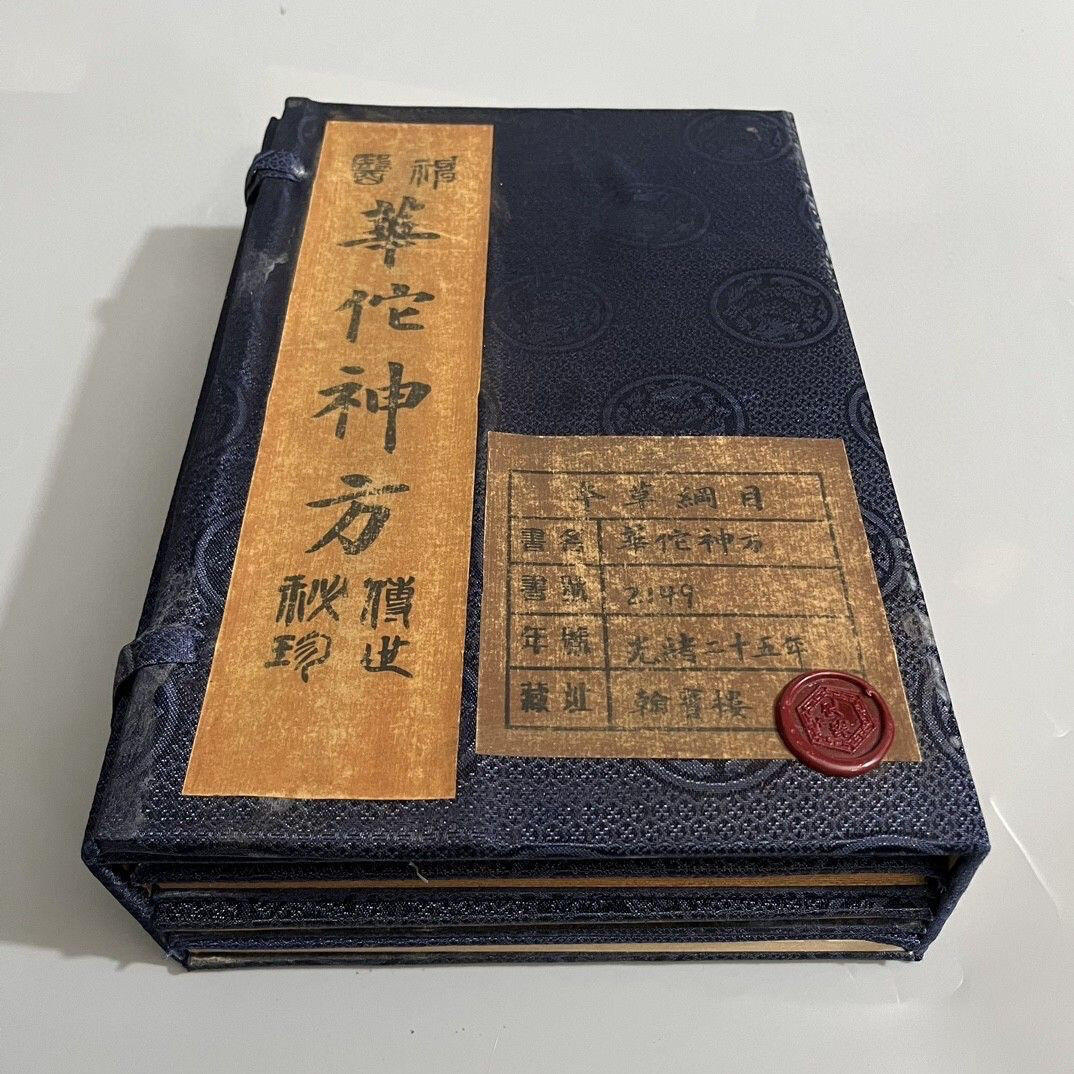 神醫
華佗神方
傳世
秘珍
本草綱目
書名 華佗神方
書號 2149
年號 光緒二十五年
藏址